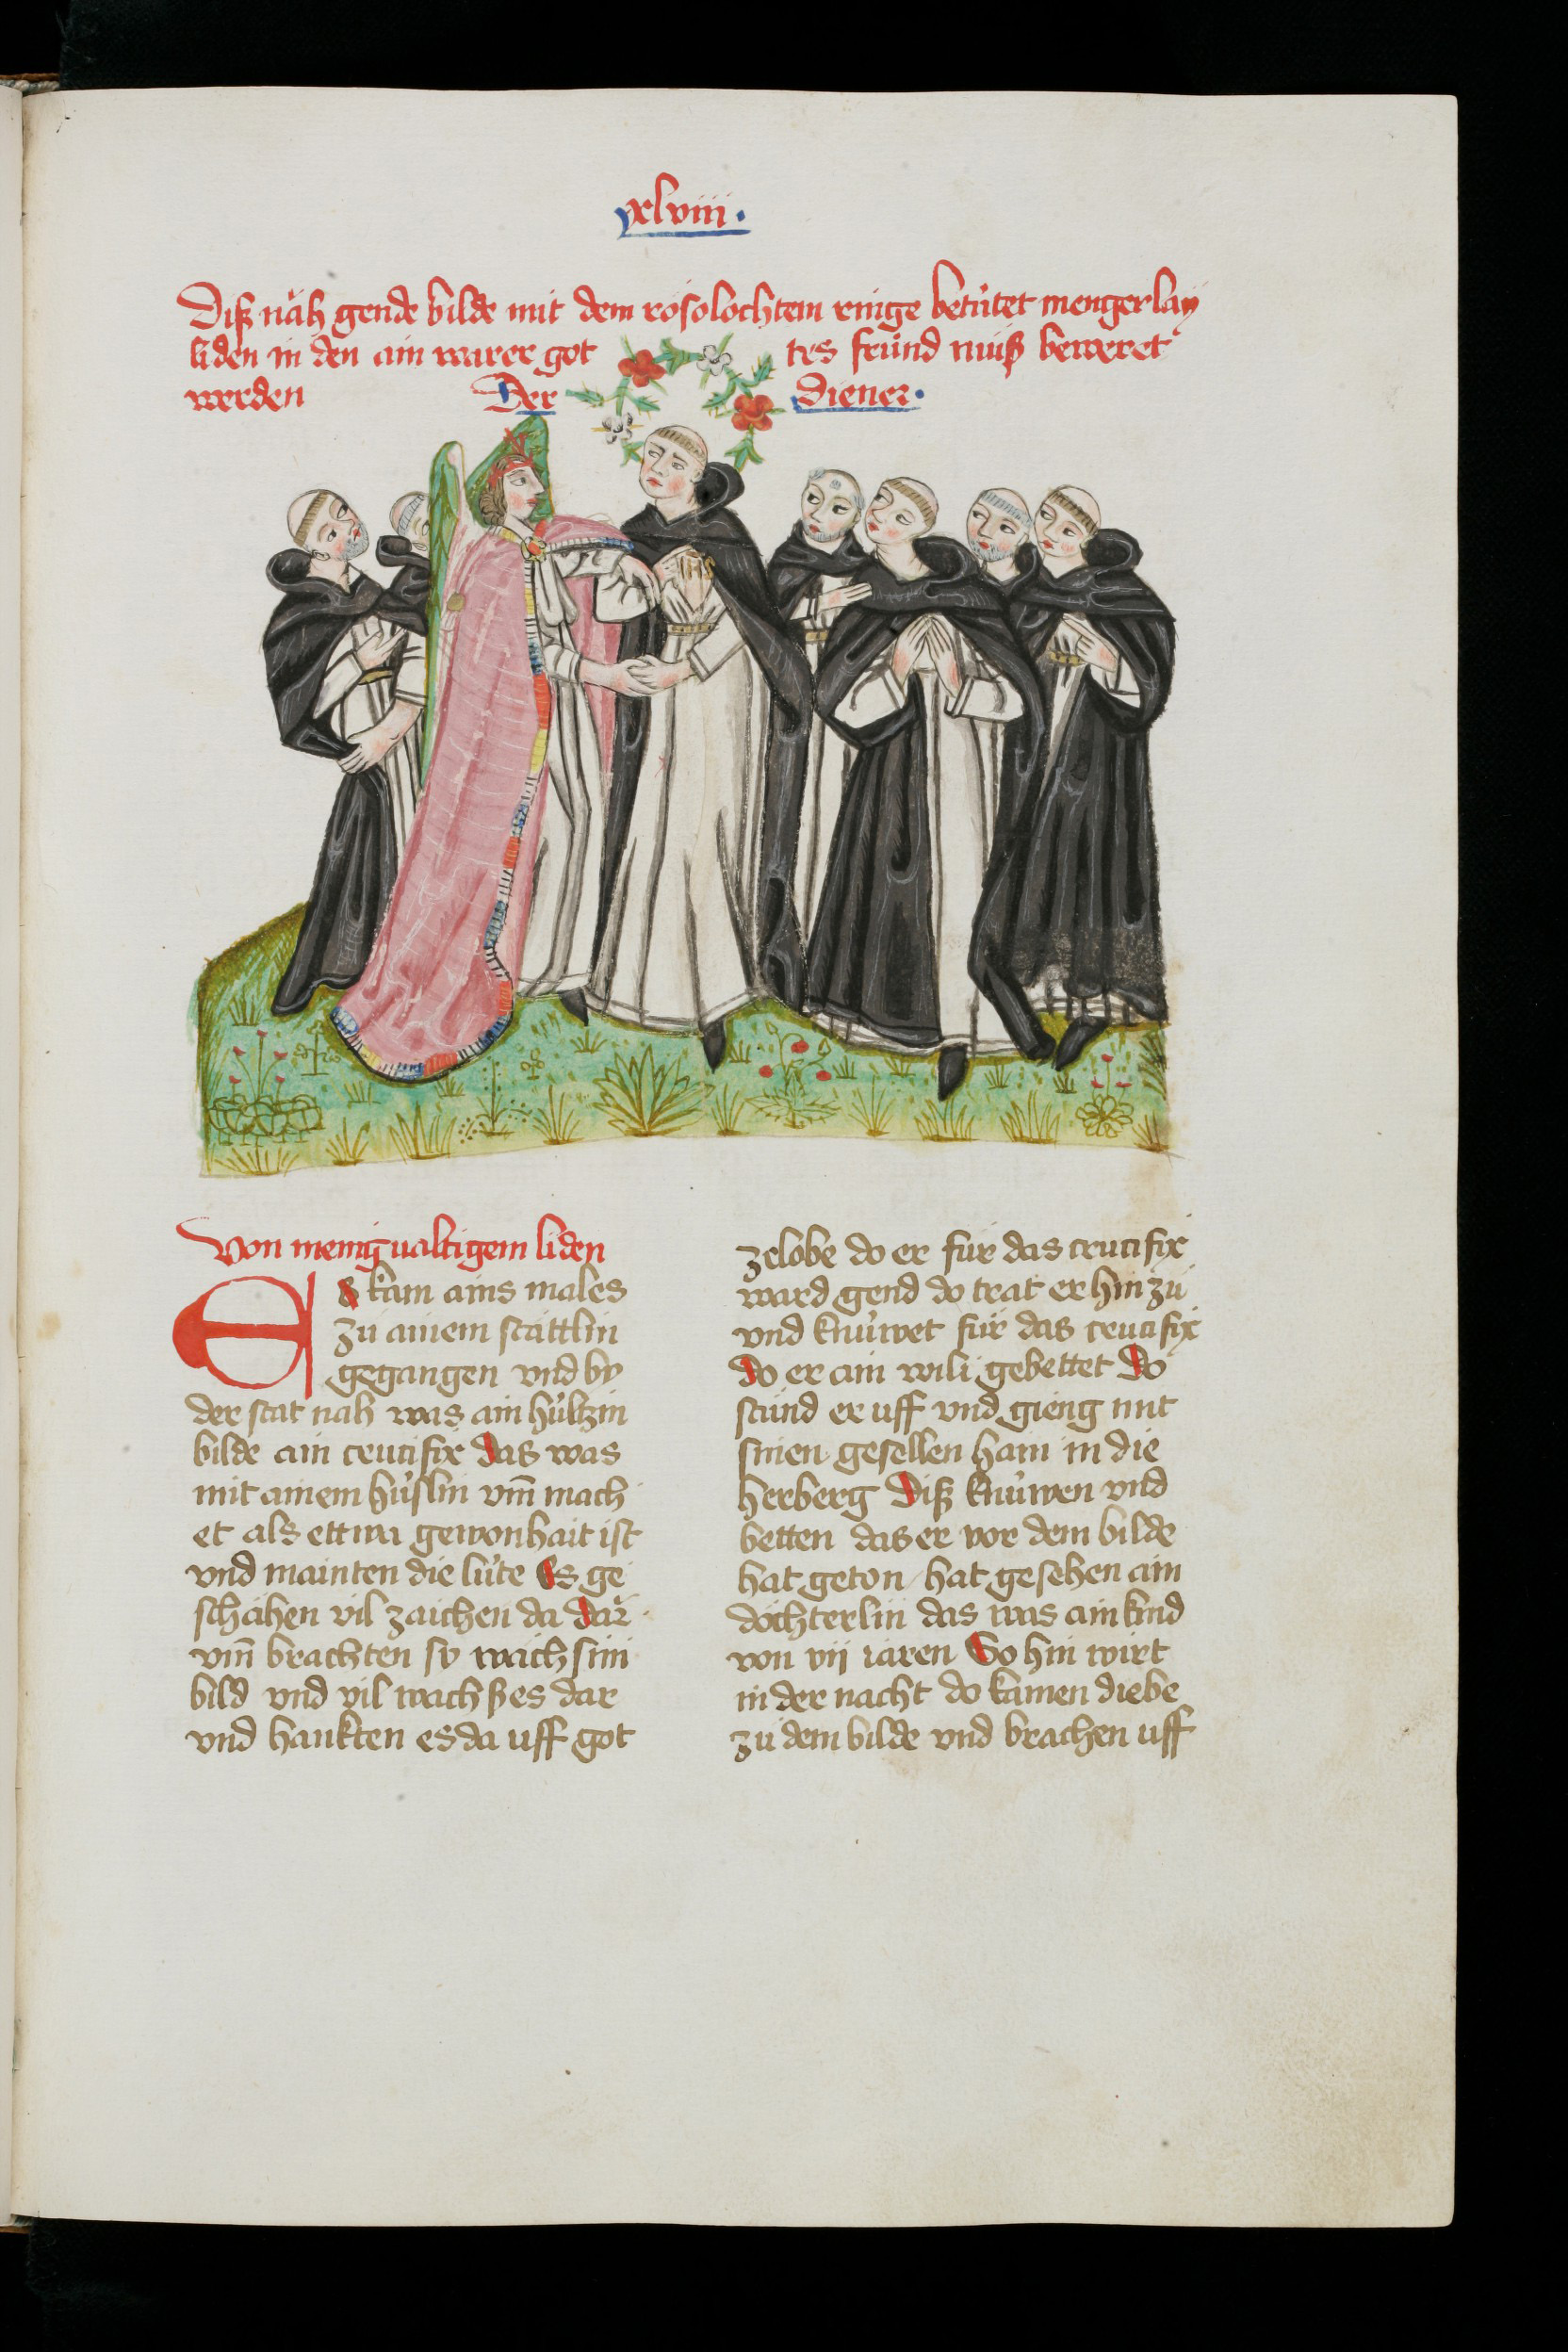 xlviii.
Diß näh gende bilde mit dem rosolochtem ringe betu̍tet mengerlay
liden in den ain warer got tes fru̍nd muiß beweret
werden Der Diener.
IHS
Von menigualtigem liden
Es kam ains males
zu ainem stättlin
gegangen vnd by
der stat nah was ain hu̍ltzin
bilde ain crucifix das was
mit ainem hu̍slin vm̄ mach
et als ettwa gewonhait ist
vnd mainten die lu̍te Es ge
schähen vil zaichen da dar
vm̄ brachten sy wächsini
bild vnd vil wachßes dar
vnd hankten es da uff got
zelobe do er fu̍r das crucifix
ward gend do trat er hin zů
vnd knu̍wet fu̍r das crucifix
do er ain wili gebettet Do
stůnd er uff vnd gieng mit
sinen gesellen hain in die
herberg Diß knu̍wen vnd
betten das er vor dem bilde
hat geton hat gesehen ain
dochterlin das was ain kind
von vij iaren So hin wirt
in der nacht do kamen diebe
zů dem bilde vnd brachen uff